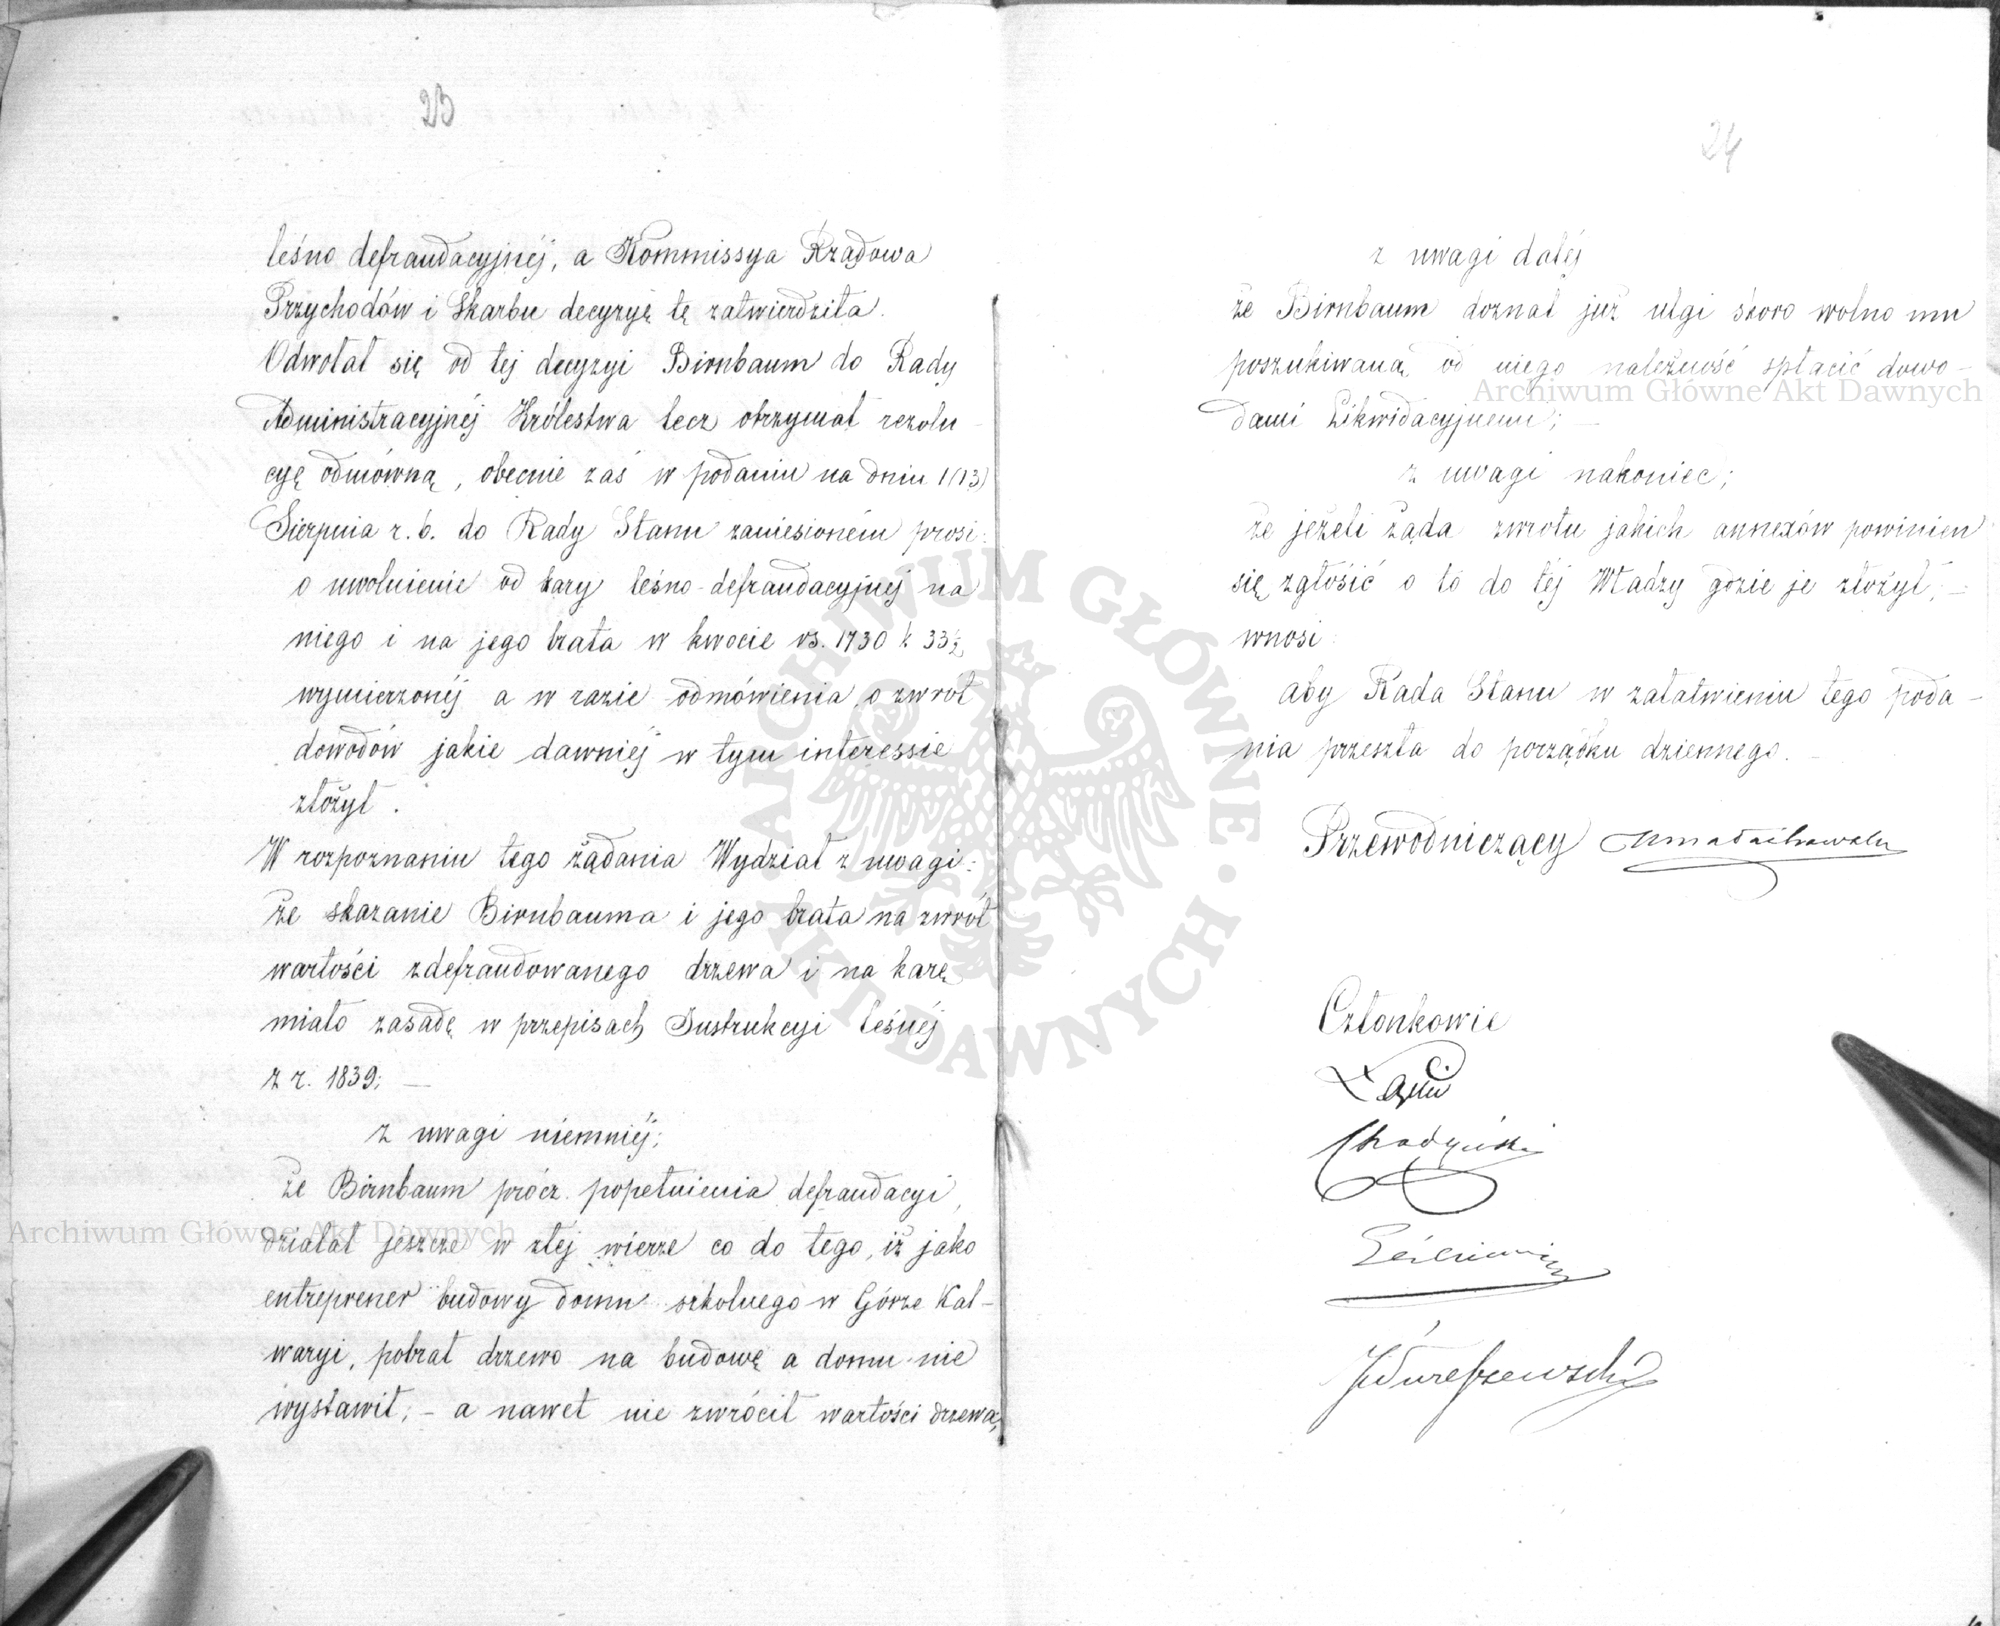 23
leśno defraudacyjnéj, a Kommissya Rządowa
Przychodów i Skarbu decyzyę tę zatwierdziła.
Odwołał się od tej decyzyi Birnbaum do Rady
Administracyjnéj Królestwa lecz otrzymał rezolu
cyę odmówną, obecnie zaś w podaniu na dniu 1(13)
Sierpnia r. b. do Rady Stanu zaniesioném prosi:
o uwolnienie od kary leśno-defraudacyjnej na
niego i na jego brata w kwocie rs. 1730 k 33½
wymierzonéj a w razie odmówienia, o zwrót
dowodów jakie dawniéj w tym interessie
złożył.
W rozpoznaniu tego żądania Wydział z uwagi:
że skazanie Birnbauma i jego brata na zwrót
wartości zdefraudowanego drzewa i na karę
miało zasadę w przepisach Instrukcyi leśnéj
z r. 1839; —
z uwagi niemniéj;
że Birnbaum prócz popełnienia defraudacyi,
działał jeszcze w złéj wierze co do tego, iż jako
entreprener budowy domu szkolnego w Górze Kal-
waryi, pobrał drzewo na budowę a domu nie
wystawił; - a nawet nie zwrócił wartości drzewa,
24
z uwagi daléj
że Birnbaum doznał już ulgi skoro wolno mu
poszukiwaną od niego należność spłacić dowo-
dami Likwidacyjnemi; —
z uwagi nakoniec;
że jeżeli żąda zwrotu jakich annexów powinien
się zgłosić o to do téj Władzy gdzie je złożył, —
wnosi:
aby Rada Stanu w załatwieniu tego poda-
nia przeszła do porządku dziennego. —
Przewodniczący
Członkowie
Archiwum Główne Akt Dawnych
Archiwum Główne Akt Dawnych
ARCHIWUM GŁÓWNE AKT DAWNYCH